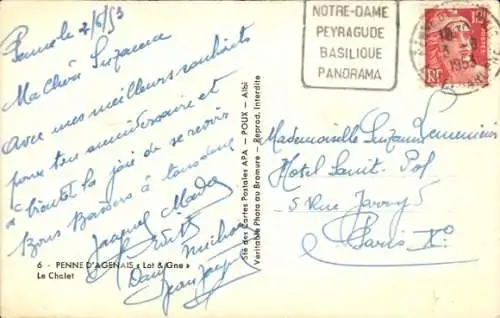 Penne le 2/6/53
Ma Chère Suzanne
Avec mes meilleurs souhaits
pour ton anniversaire et
à bientôt la joie de se revoir
Bons Baisers à tous deux
Jacques Mado
Dany Michou
Jean Jacques
6 - PENNE D'AGENAIS « Lot & Gne »
Le Chalet
Sté des Cartes Postales APA - POUX - Albi
Véritable Photo au Bromure - Reprod. Interdite
NOTRE-DAME
PEYRAGUDE
BASILIQUE
PANORAMA
RF
Mademoiselle Suzanne
Hotel Saint Pol
5 Rue Jarry
Paris X°